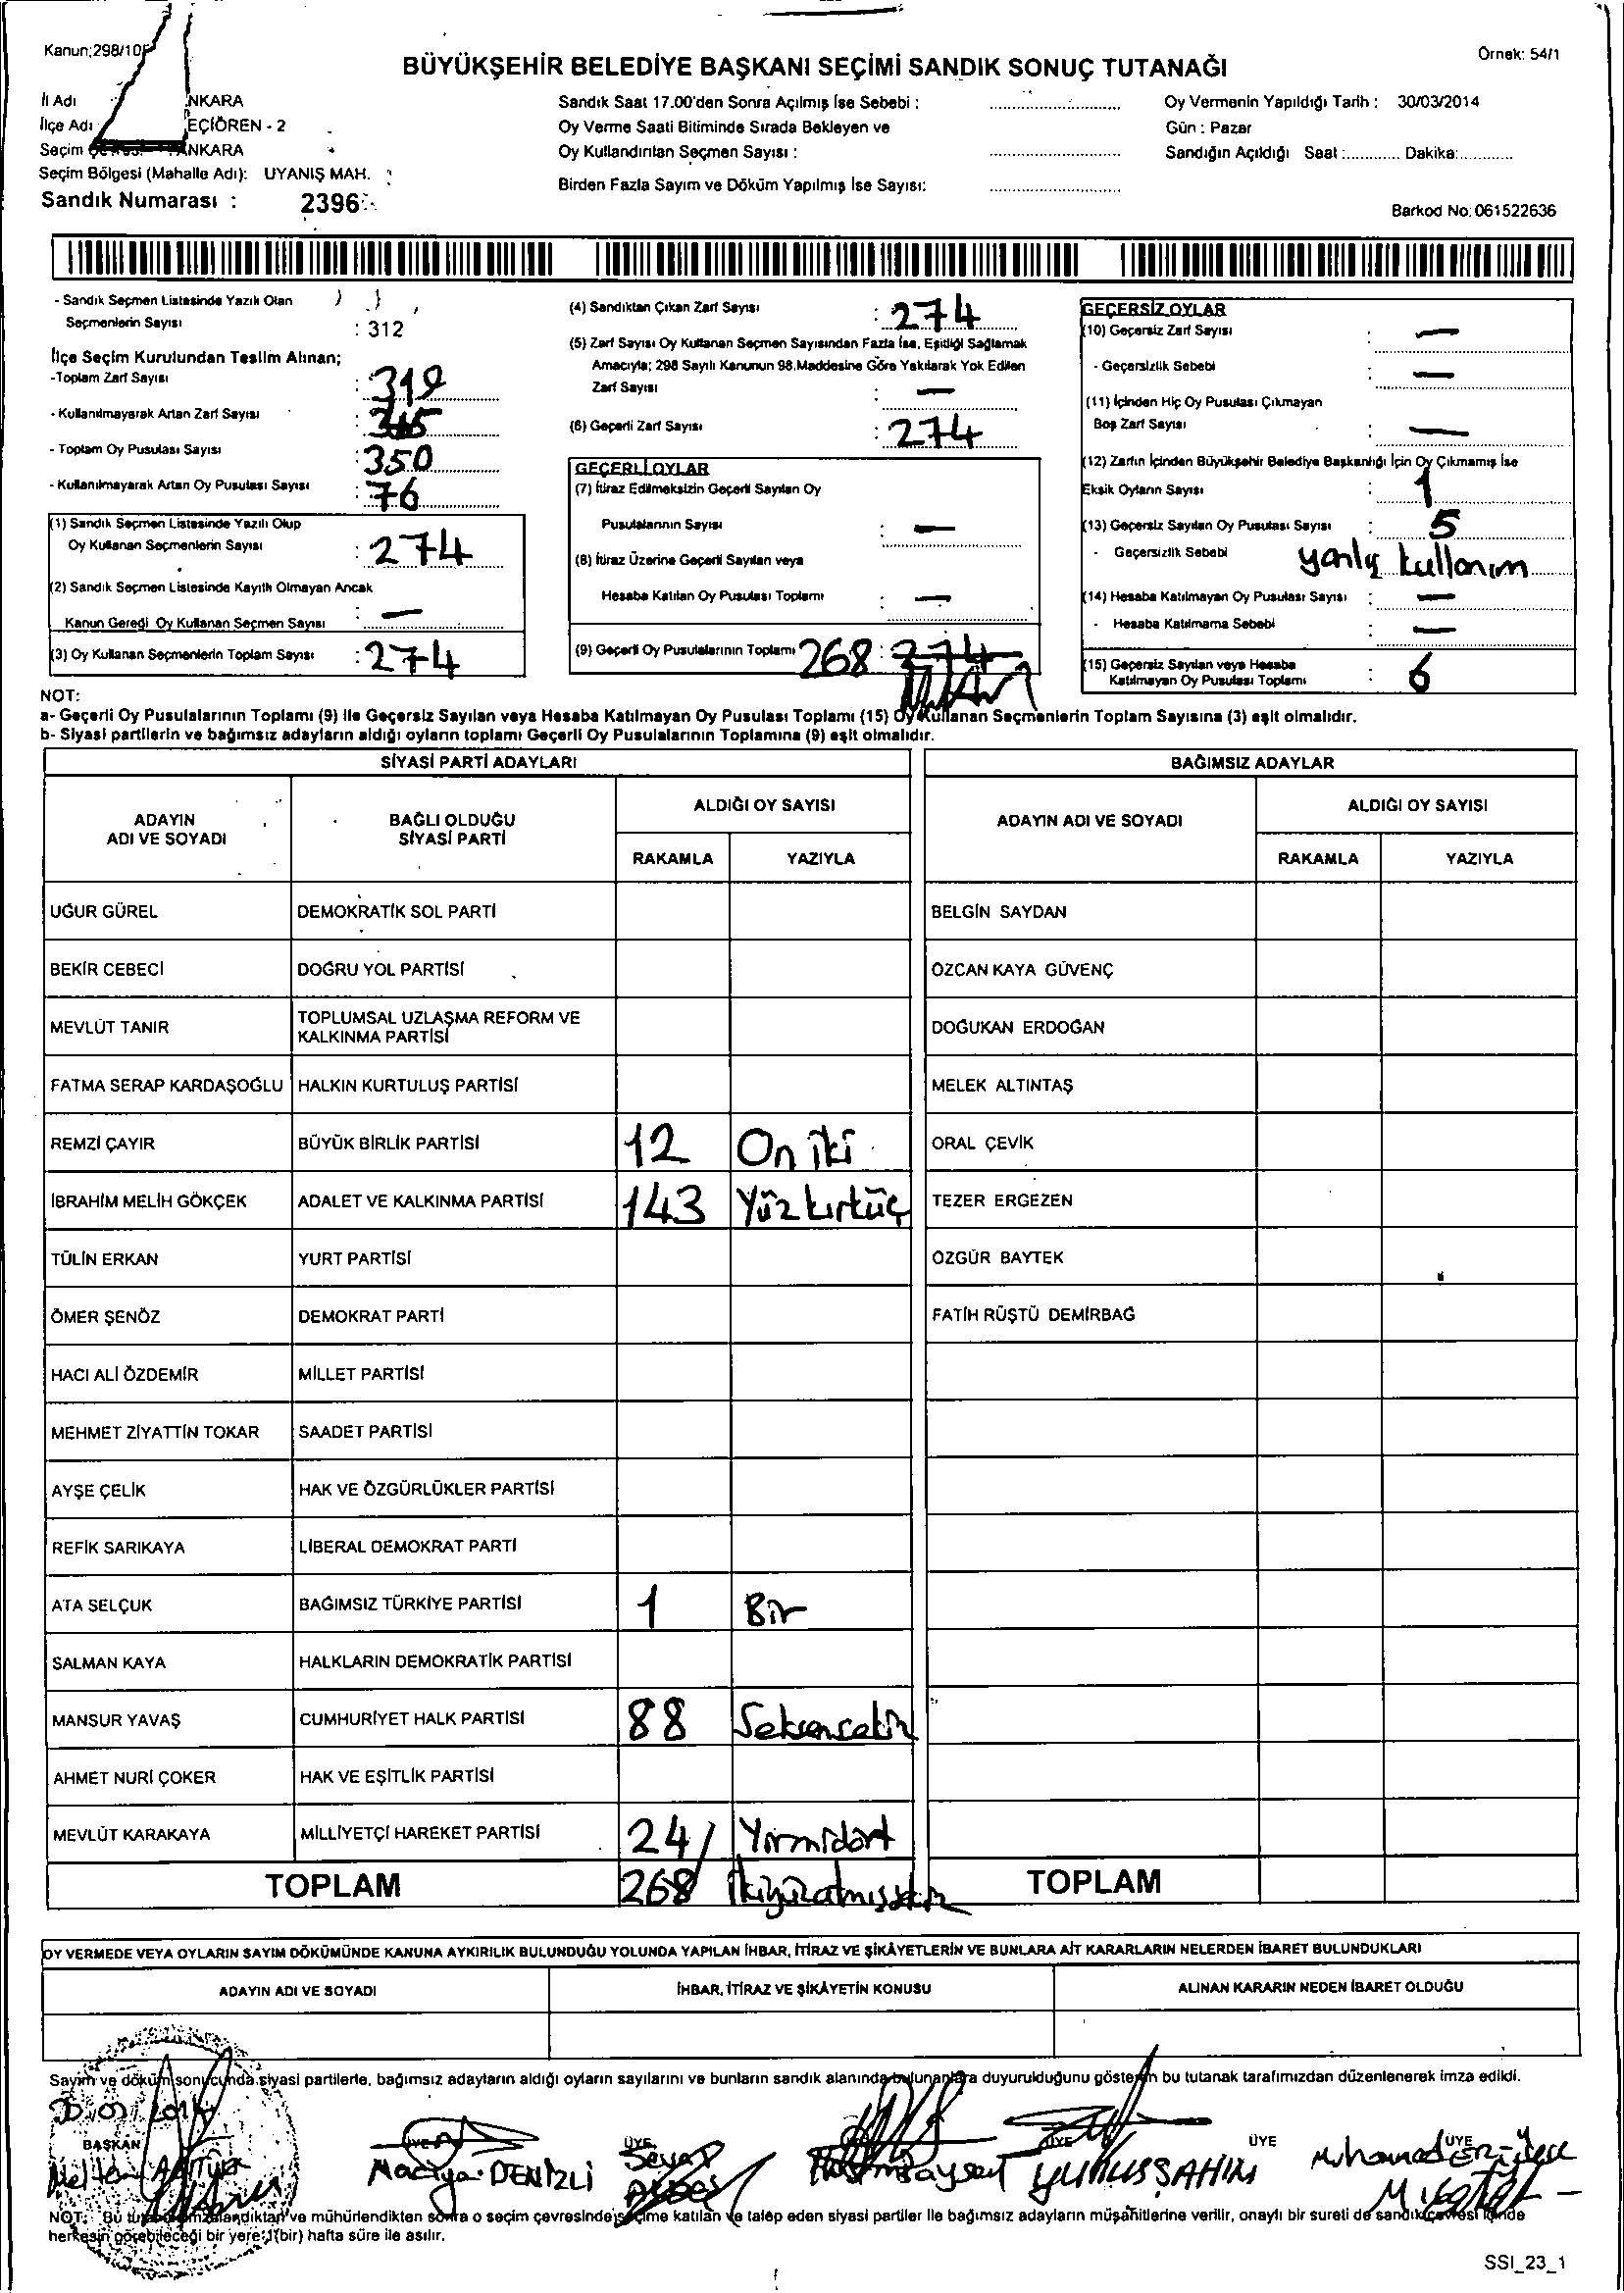 Kanun;298/10
Örnek: 54/1
BÜYÜKŞEHİR BELEDİYE BAŞKANI SEÇİMİ SANDIK SONUÇ TUTANAĞI
İl Adı NKARA
İlçe Adı EÇİÖREN - 2
Seçim ANKARA
Seçim Bölgesi (Mahalle Adı): UYANIŞ MAH.
Sandık Numarası : 2396
Sandık Saat 17.00'den Sonra Açılmış İse Sebebi :
Oy Verme Saati Bitiminde Sırada Bekleyen ve
Oy Kullandırılan Seçmen Sayısı :
Birden Fazla Sayım ve Döküm Yapılmış İse Sayısı:
Oy Vermenin Yapıldığı Tarih : 30/03/2014
Gün : Pazar
Sandığın Açıldığı Saat :............ Dakika:............
Barkod No: 061522636
- Sandık Seçmen Listesinde Yazılı Olan
Seçmenlerin Sayısı : 312
İlçe Seçim Kurulundan Teslim Alınan;
-Toplam Zarf Sayısı :
- Kullanılmayarak Artan Zarf Sayısı :
- Toplam Oy Pusulası Sayısı : 350
- Kullanılmayarak Artan Oy Pusulası Sayısı : 76
(1) Sandık Seçmen Listesinde Yazılı Olup
Oy Kullanan Seçmenlerin Sayısı : 274
(2) Sandık Seçmen Listesinde Kayıtlı Olmayan Ancak
Kanun Gereği Oy Kullanan Seçmen Sayısı : —
(3) Oy Kullanan Seçmenlerin Toplam Sayısı : 274
(4) Sandıktan Çıkan Zarf Sayısı : 274
(5) Zarf Sayısı Oy Kullanan Seçmen Sayısından Fazla İse, Eşitliği Sağlamak
Amacıyla; 298 Sayılı Kanunun 98.Maddesine Göre Yakılarak Yok Edilen
Zarf Sayısı : —
(6) Geçerli Zarf Sayısı : 274
GEÇERLİ OYLAR
(7) İtiraz Edilmeksizin Geçerli Sayılan Oy
Pusulalarının Sayısı : —
(8) İtiraz Üzerine Geçerli Sayılan veya
Hesaba Katılan Oy Pusulası Toplamı : —
(9) Geçerli Oy Pusulalarının Toplamı 268 : 274
GEÇERSİZ OYLAR
(10) Geçersiz Zarf Sayısı : —
- Geçersizlik Sebebi : —
(11) İçinden Hiç Oy Pusulası Çıkmayan
Boş Zarf Sayısı : —
(12) Zarfın İçinden Büyükşehir Belediye Başkanlığı İçin Oy Çıkmamış İse
Eksik Oyların Sayısı : 1
(13) Geçersiz Sayılan Oy Pusulası Sayısı : 5
- Geçersizlik Sebebi yanlış kullanım
(14) Hesaba Katılmayan Oy Pusulası Sayısı : —
- Hesaba Katılmama Sebebi : —
(15) Geçersiz Sayılan veya Hesaba
Katılmayan Oy Pusulası Toplamı : 6
NOT:
a- Geçerli Oy Pusulalarının Toplamı (9) İle Geçersiz Sayılan veya Hesaba Katılmayan Oy Pusulası Toplamı (15) Oy Kullanan Seçmenlerin Toplam Sayısına (3) eşit olmalıdır.
b- Siyasi partilerin ve bağımsız adayların aldığı oyların toplamı Geçerli Oy Pusulalarının Toplamına (9) eşit olmalıdır.
SİYASİ PARTİ ADAYLARI BAĞIMSIZ ADAYLAR
ADAYIN ADI VE SOYADI BAĞLI OLDUĞU SİYASİ PARTİ ALDIĞI OY SAYISI ADAYIN ADI VE SOYADI ALDIĞI OY SAYISI
RAKAMLA YAZIYLA RAKAMLA YAZIYLA
UĞUR GÜREL DEMOKRATİK SOL PARTİ BELGİN SAYDAN
BEKİR CEBECİ DOĞRU YOL PARTİSİ ÖZCAN KAYA GÜVENÇ
MEVLÜT TANIR TOPLUMSAL UZLAŞMA REFORM VE KALKINMA PARTİSİ DOĞUKAN ERDOĞAN
FATMA SERAP KARDAŞOĞLU HALKIN KURTULUŞ PARTİSİ MELEK ALTINTAŞ
REMZİ ÇAYIR BÜYÜK BİRLİK PARTİSİ 12 On iki ORAL ÇEVİK
İBRAHİM MELİH GÖKÇEK ADALET VE KALKINMA PARTİSİ 143 Yüz kırküç TEZER ERGEZEN
TÜLİN ERKAN YURT PARTİSİ ÖZGÜR BAYTEK
ÖMER ŞENÖZ DEMOKRAT PARTİ FATİH RÜŞTÜ DEMİRBAĞ
HACI ALİ ÖZDEMİR MİLLET PARTİSİ
MEHMET ZİYATTİN TOKAR SAADET PARTİSİ
AYŞE ÇELİK HAK VE ÖZGÜRLÜKLER PARTİSİ
REFİK SARIKAYA LİBERAL DEMOKRAT PARTİ
ATA SELÇUK BAĞIMSIZ TÜRKİYE PARTİSİ 1 Bir
SALMAN KAYA HALKLARIN DEMOKRATİK PARTİSİ
MANSUR YAVAŞ CUMHURİYET HALK PARTİSİ 88 Seksensekiz
AHMET NURİ ÇOKER HAK VE EŞİTLİK PARTİSİ
MEVLÜT KARAKAYA MİLLİYETÇİ HAREKET PARTİSİ 24 Yirmidört
TOPLAM 268 İkiyüzatmışsekiz TOPLAM
OY VERMEDE VEYA OYLARIN SAYIM DÖKÜMÜNDE KANUNA AYKIRILIK BULUNDUĞU YOLUNDA YAPILAN İHBAR, İTİRAZ VE ŞİKÂYETLERİN VE BUNLARA AİT KARARLARIN NELERDEN İBARET BULUNDUKLARI
ADAYIN ADI VE SOYADI İHBAR, İTİRAZ VE ŞİKÂYETİN KONUSU ALINAN KARARIN NEDEN İBARET OLDUĞU
Sayım ve döküm sonucunda siyasi partilerle, bağımsız adayların aldığı oyların sayılarını ve bunların sandık alanında bulunanlara duyurulduğunu gösteren bu tutanak tarafımızdan düzenlenerek imza edildi.
BAŞKAN ÜYE ÜYE ÜYE ÜYE ÜYE
DENİZLİ YUNUS ŞAHİN
NOT: Bu tutanak imzalandıktan ve mühürlendikten sonra o seçim çevresinde seçime katılan ve talep eden siyasi partiler ile bağımsız adayların müşahitlerine verilir, onaylı bir sureti de sandık çevresi içinde
herkesin görebileceği bir yere 1(bir) hafta süre ile asılır.
SSI_23_1